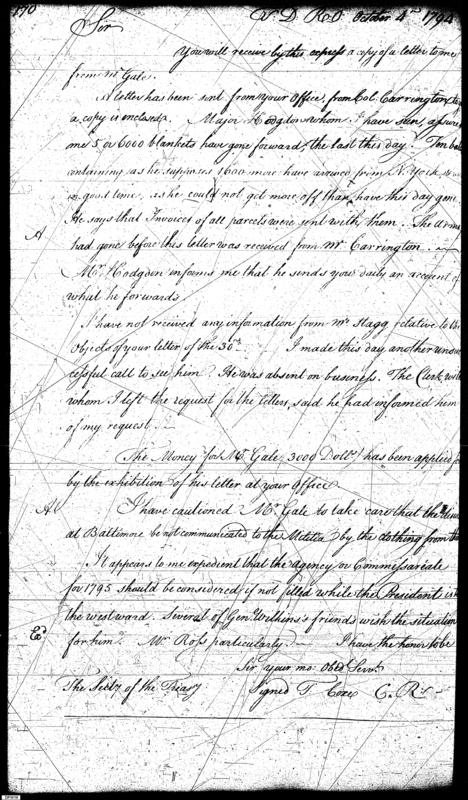 170
T. D. R. O. October 4th 1794
Sir
You will receive by this express a copy of a letter to me
from Mr Gale.
A letter has been sent from your Office, from Col. Carrington,
a copy is enclosed. Major Hodgdon whom I have seen, assures
me 5 or 6000 blankets have gone forward, the last this day. Ten
containing as he supposes 1600 more have arrived from N. York,
in good time, as he could not get more off than have this day gone
He says that Invoices of all parcels were sent with them. The arms
A
had gone before this letter was received from Mr Carrington.
Mr Hodgden informs me that he sends you daily an account of
what he forwards.
I have not received any information from Mr Stagg relative to the
Objects of your letter of the 30th. I made this day another unsuc
cessful call to see him. He was absent on business. The Clerk with
whom I left the request for the letters, said he had informed him
of my request.
The Money for Mr Gale, 3000 Dolls has been applied for
by the exhibition of his letter at your Office.
A
I have cautioned Mr Gale to take care that the
at Baltimore be not communicated to the Militia by the clothing from
It appears to me expedient that the agency or Commissariate
for 1795 should be considered, if not filled while the President is in
the westward. Several of Genl Wilkins's friends wish the situation
Exd
for him. Mr Ross particularly. I have the honor to be
Sir your mo: Obed Servt
The Secty of the Treasy Signed T. Coxe C. R.